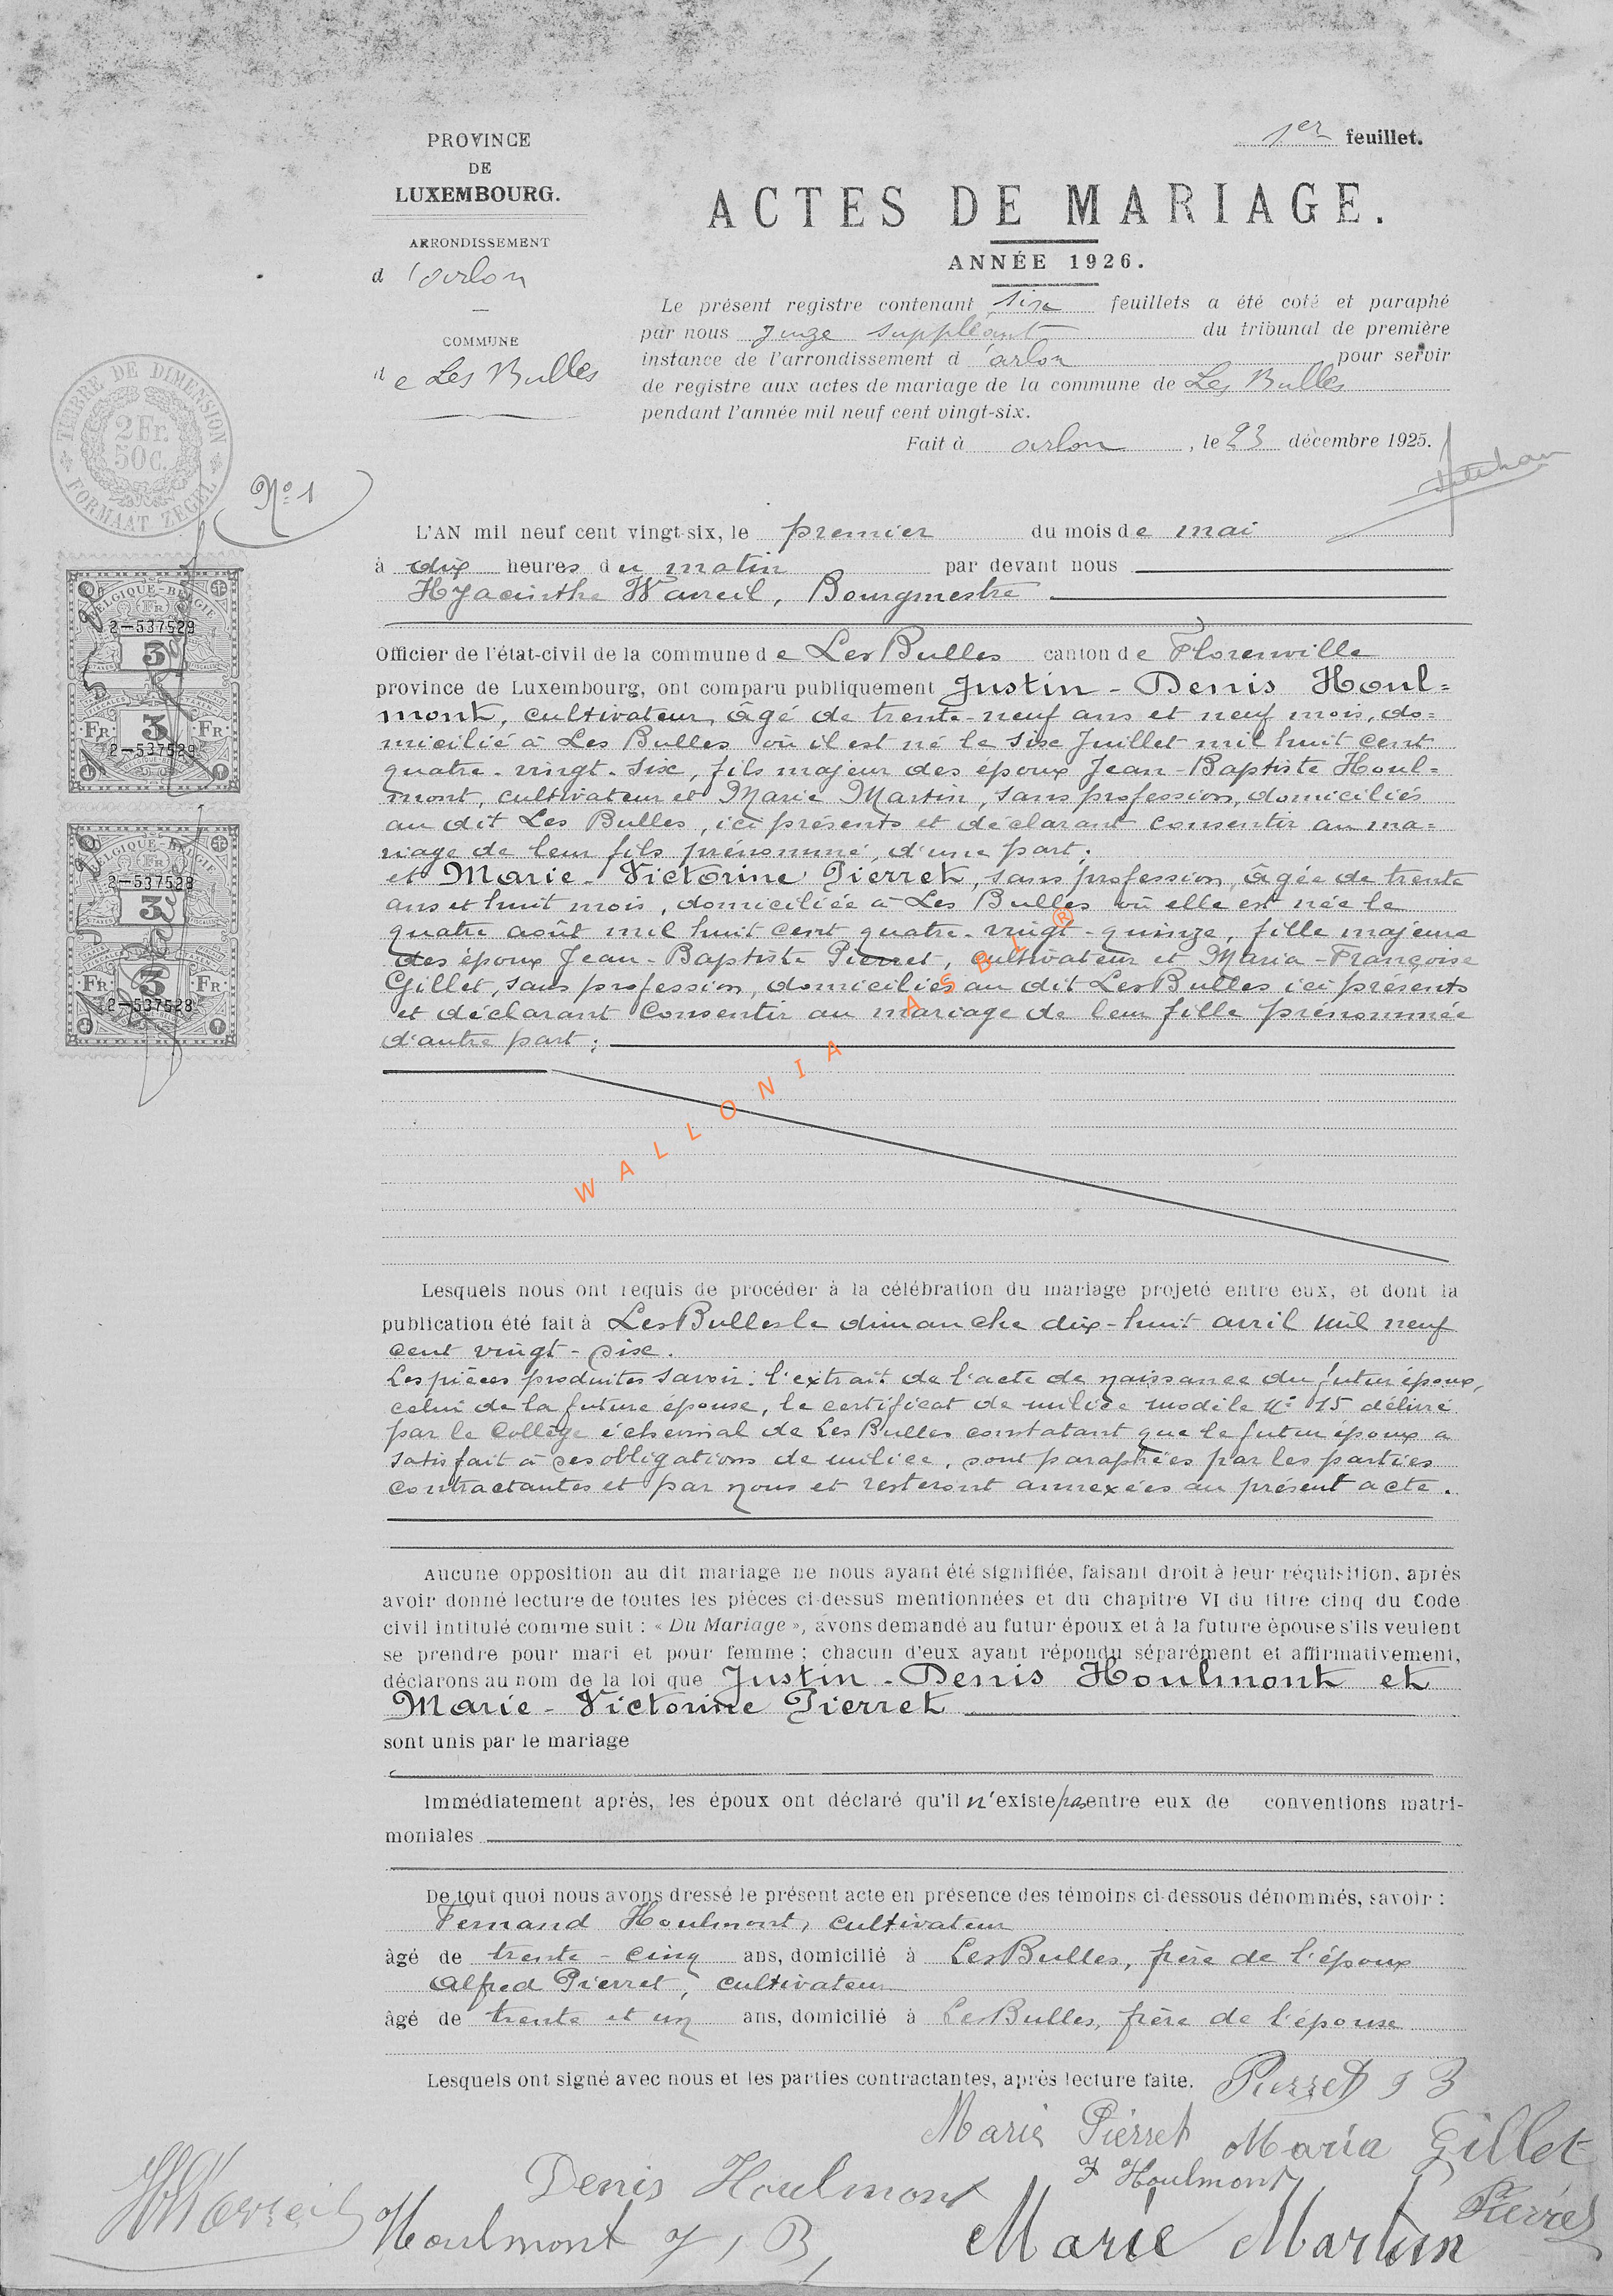 PROVINCE
DE
LUXEMBOURG.
ARRONDISSEMENT
d'arlon
COMMUNE
de Les Bulles
1er feuillet.
ACTES DE MARIAGE.
ANNÉE 1926.
Le présent registre contenant six feuillets a été coté et paraphé
par nous Juge suppléant du tribunal de première
instance de l'arrondissement d'arlon pour servir
de registre aux actes de mariage de la commune de Les Bulles
pendant l'année mil neuf cent vingt-six.
Fait à arlon, le 23 décembre 1925.
TIMBRE DE DIMENSION
2 Fr.
50 C.
FORMAAT ZEGEL
No 1
L'AN mil neuf cent vingt-six, le premier du mois de mai
à dix heures du matin par devant nous
Hyacinthe Wavreil, Bourgmestre
BELGIQUE-BELGIE
Fr
2-537529
3
Fr. 3 Fr.
2-537529
BELGIQUE-BELGIE
Fr
2-537528
3
Fr. 3 Fr.
2-537528
Officier de l'état-civil de la commune de Les Bulles canton de Florenville
province de Luxembourg, ont comparu publiquement Justin-Denis Houl=
mont, cultivateur, âgé de trente-neuf ans et neuf mois, do=
micilié à Les Bulles où il est né le six Juillet mil huit cent
quatre-vingt-six, fils majeur des époux Jean-Baptiste Houl=
mont, cultivateur et Marie Martin, sans profession, domiciliés
au dit Les Bulles, ici présents et déclarant consentir au ma=
riage de leur fils prénommé, d'une part;
et Marie-Victorine Pierret, sans profession, âgée de trente
ans et huit mois, domiciliée à Les Bulles où elle est née le
quatre août mil huit cent quatre-vingt-quinze, fille majeure
des époux Jean-Baptiste Pierret, cultivateur et Maria-Françoise
Gillet, sans profession, domiciliés au dit Les Bulles ici présents
et déclarant consentir au mariage de leur fille prénommée
d'autre part;
WALLONIA ASBL ®
Lesquels nous ont requis de procéder à la célébration du mariage projeté entre eux, et dont la
publication été fait à Les Bulles le dimanche dix-huit avril mil neuf
cent vingt-six.
Les pièces produites savoir: l'extrait de l'acte de naissance du futur époux,
celui de la future épouse, le certificat de milice modèle No 15 délivré
par le Collège échevinal de Les Bulles constatant que le futur époux a
satisfait à ses obligations de milice, sont paraphées par les parties
contractantes et par nous et resteront annexées au présent acte.
Aucune opposition au dit mariage ne nous ayant été signifiée, faisant droit à leur réquisition, après
avoir donné lecture de toutes les pièces ci-dessus mentionnées et du chapitre VI du titre cinq du Code
civil intitulé comme suit : « Du Mariage », avons demandé au futur époux et à la future épouse s'ils veulent
se prendre pour mari et pour femme ; chacun d'eux ayant répondu séparément et affirmativement,
déclarons au nom de la loi que Justin-Denis Houlmont et
Marie-Victorine Pierret
sont unis par le mariage
Immédiatement après, les époux ont déclaré qu'il n'existe pas entre eux de conventions matri-
moniales
De tout quoi nous avons dressé le présent acte en présence des témoins ci-dessous dénommés, savoir :
Fernand Houlmont, cultivateur
âgé de trente-cinq ans, domicilié à Les Bulles, frère de l'époux
Alfred Pierret, cultivateur
âgé de trente et un ans, domicilié à Les Bulles, frère de l'épouse
Lesquels ont signé avec nous et les parties contractantes, après lecture faite. Pierret J B
Marie Pierret Maria Gillet
Denis Houlmont F Houlmont
HWavreil Houlmont J, B, Marie Martin Pierret